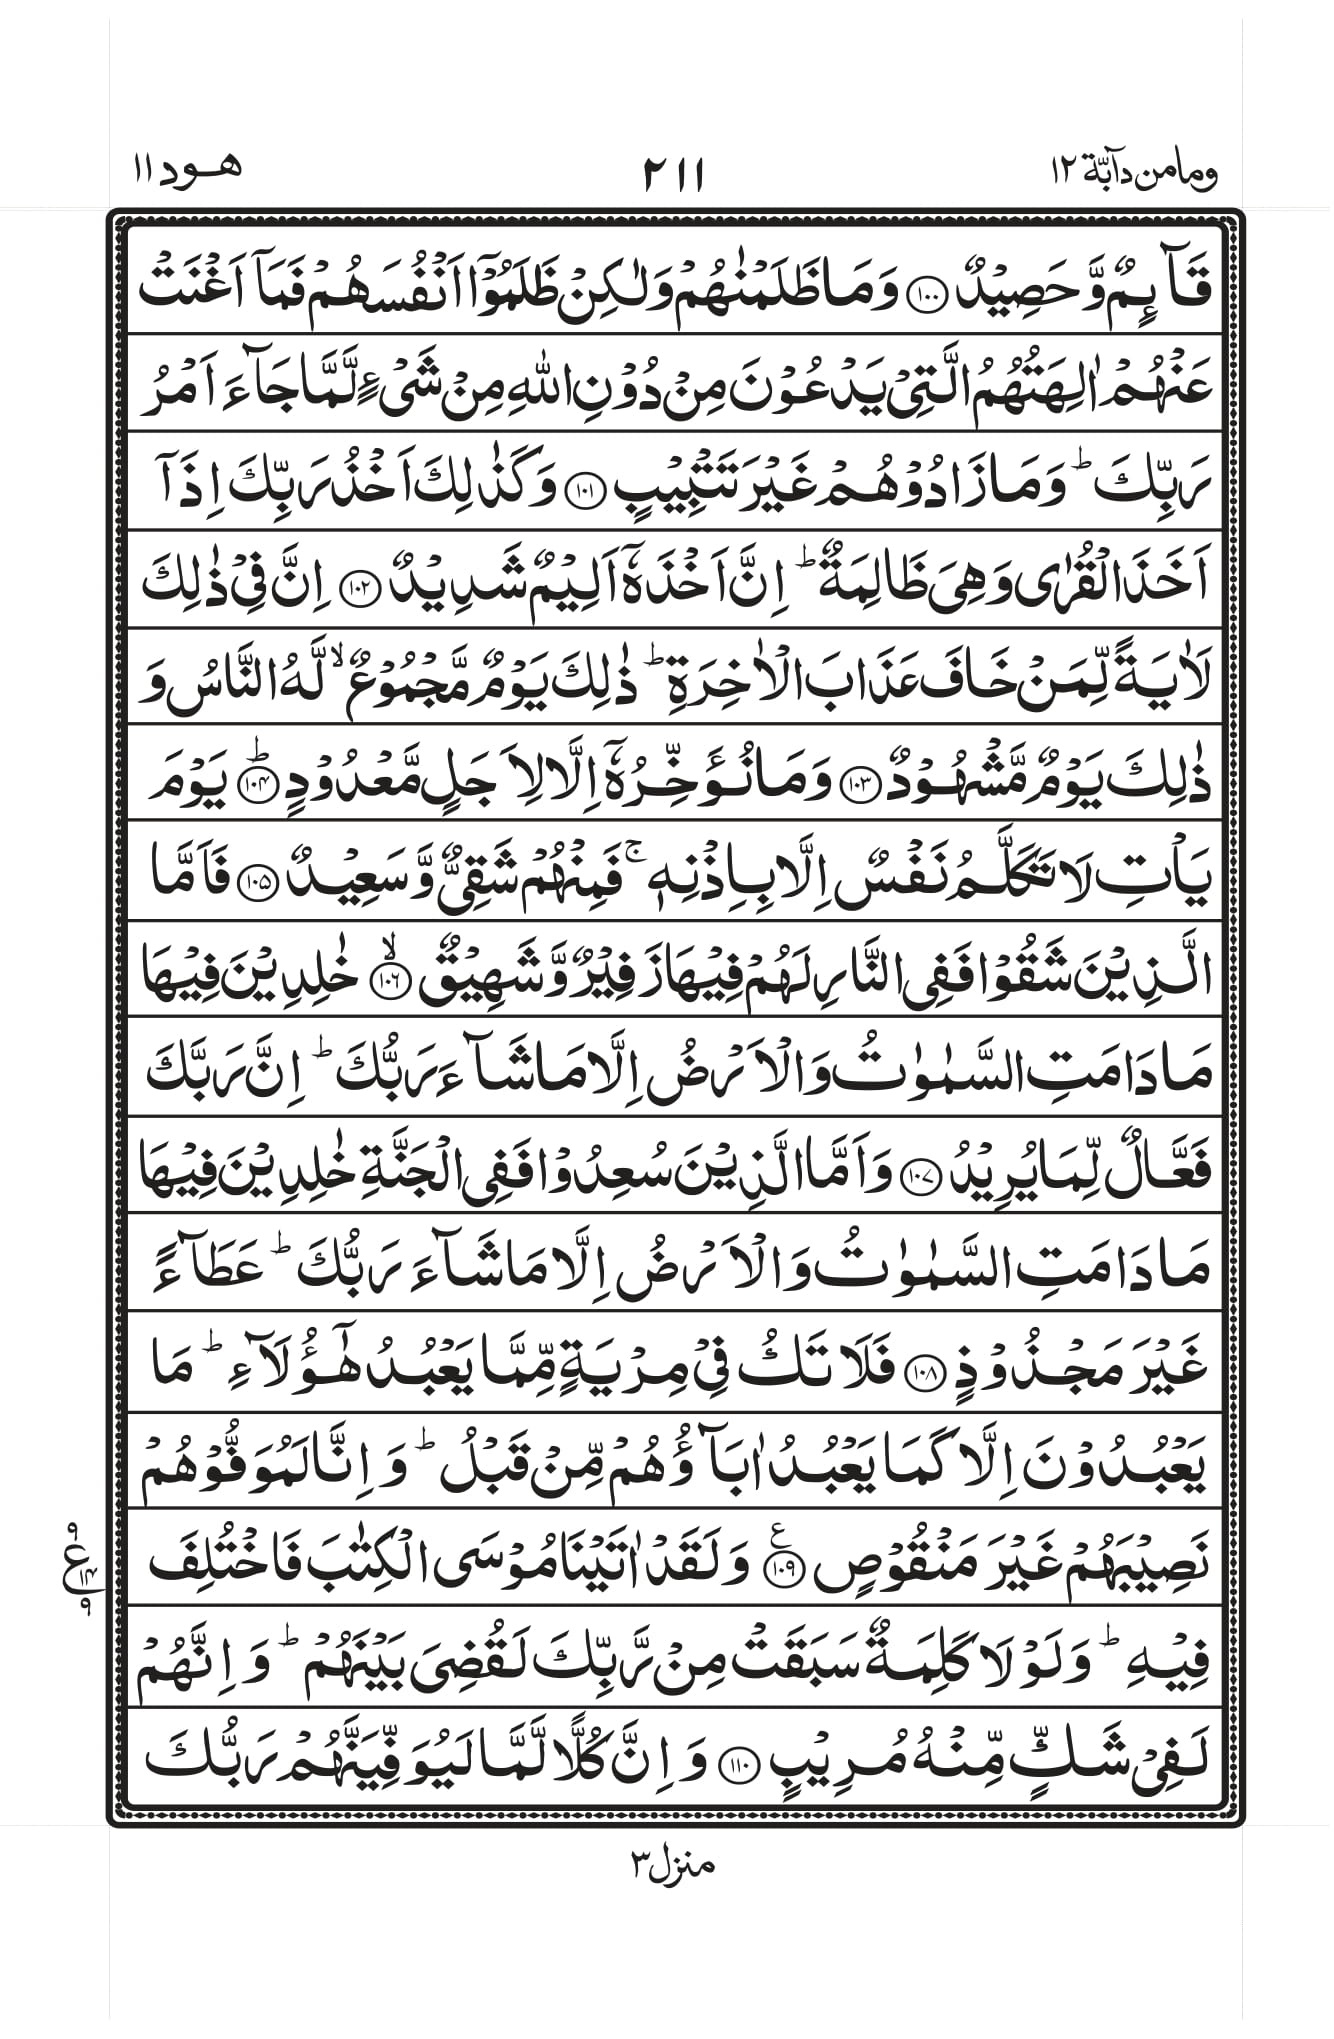 ومامن دآبّة ١٢ ٢١١ هود ١١
قَآئِمٌ وَّحَصِیْدٌ ﴿۱۰۰﴾ وَمَا ظَلَمْنٰهُمْ وَلٰكِنْ ظَلَمُوْۤا اَنْفُسَهُمْ فَمَاۤ اَغْنَتْ
عَنْهُمْ اٰلِهَتُهُمُ الَّتِیْ یَدْعُوْنَ مِنْ دُوْنِ اللّٰهِ مِنْ شَیْءٍ لَّمَّا جَآءَ اَمْرُ
رَبِّكَ ؕ وَمَا زَادُوْهُمْ غَیْرَ تَتْبِیْبٍ ﴿۱۰۱﴾ وَكَذٰلِكَ اَخْذُ رَبِّكَ اِذَاۤ
اَخَذَ الْقُرٰى وَهِیَ ظَالِمَةٌ ؕ اِنَّ اَخْذَهٗۤ اَلِیْمٌ شَدِیْدٌ ﴿۱۰۲﴾ اِنَّ فِیْ ذٰلِكَ
لَاٰیَةً لِّمَنْ خَافَ عَذَابَ الْاٰخِرَةِ ؕ ذٰلِكَ یَوْمٌ مَّجْمُوْعٌ ۙ لَّهُ النَّاسُ وَ
ذٰلِكَ یَوْمٌ مَّشْهُوْدٌ ﴿۱۰۳﴾ وَمَا نُؤَخِّرُهٗۤ اِلَّا لِاَجَلٍ مَّعْدُوْدٍ ﴿۱۰۴﴾ؕ یَوْمَ
یَاْتِ لَا تَكَلَّمُ نَفْسٌ اِلَّا بِاِذْنِهٖ ۚ فَمِنْهُمْ شَقِیٌّ وَّسَعِیْدٌ ﴿۱۰۵﴾ فَاَمَّا
الَّذِیْنَ شَقُوْا فَفِی النَّارِ لَهُمْ فِیْهَا زَفِیْرٌ وَّشَهِیْقٌ ﴿۱۰۶﴾ۙ خٰلِدِیْنَ فِیْهَا
مَا دَامَتِ السَّمٰوٰتُ وَالْاَرْضُ اِلَّا مَا شَآءَ رَبُّكَ ؕ اِنَّ رَبَّكَ
فَعَّالٌ لِّمَا یُرِیْدُ ﴿۱۰۷﴾ وَاَمَّا الَّذِیْنَ سُعِدُوْا فَفِی الْجَنَّةِ خٰلِدِیْنَ فِیْهَا
مَا دَامَتِ السَّمٰوٰتُ وَالْاَرْضُ اِلَّا مَا شَآءَ رَبُّكَ ؕ عَطَآءً
غَیْرَ مَجْذُوْذٍ ﴿۱۰۸﴾ فَلَا تَكُ فِیْ مِرْیَةٍ مِّمَّا یَعْبُدُ هٰۤؤُلَآءِ ؕ مَا
یَعْبُدُوْنَ اِلَّا كَمَا یَعْبُدُ اٰبَآؤُهُمْ مِّنْ قَبْلُ ؕ وَاِنَّا لَمُوَفُّوْهُمْ
نَصِیْبَهُمْ غَیْرَ مَنْقُوْصٍ ﴿۱۰۹﴾ع وَلَقَدْ اٰتَیْنَا مُوْسَى الْكِتٰبَ فَاخْتُلِفَ
۹ ع ۱۴ ۹
فِیْهِ ؕ وَلَوْلَا كَلِمَةٌ سَبَقَتْ مِنْ رَّبِّكَ لَقُضِیَ بَیْنَهُمْ ؕ وَاِنَّهُمْ
لَفِیْ شَكٍّ مِّنْهُ مُرِیْبٍ ﴿۱۱۰﴾ وَاِنَّ كُلًّا لَّمَّا لَیُوَفِّیَنَّهُمْ رَبُّكَ
منزل ٣